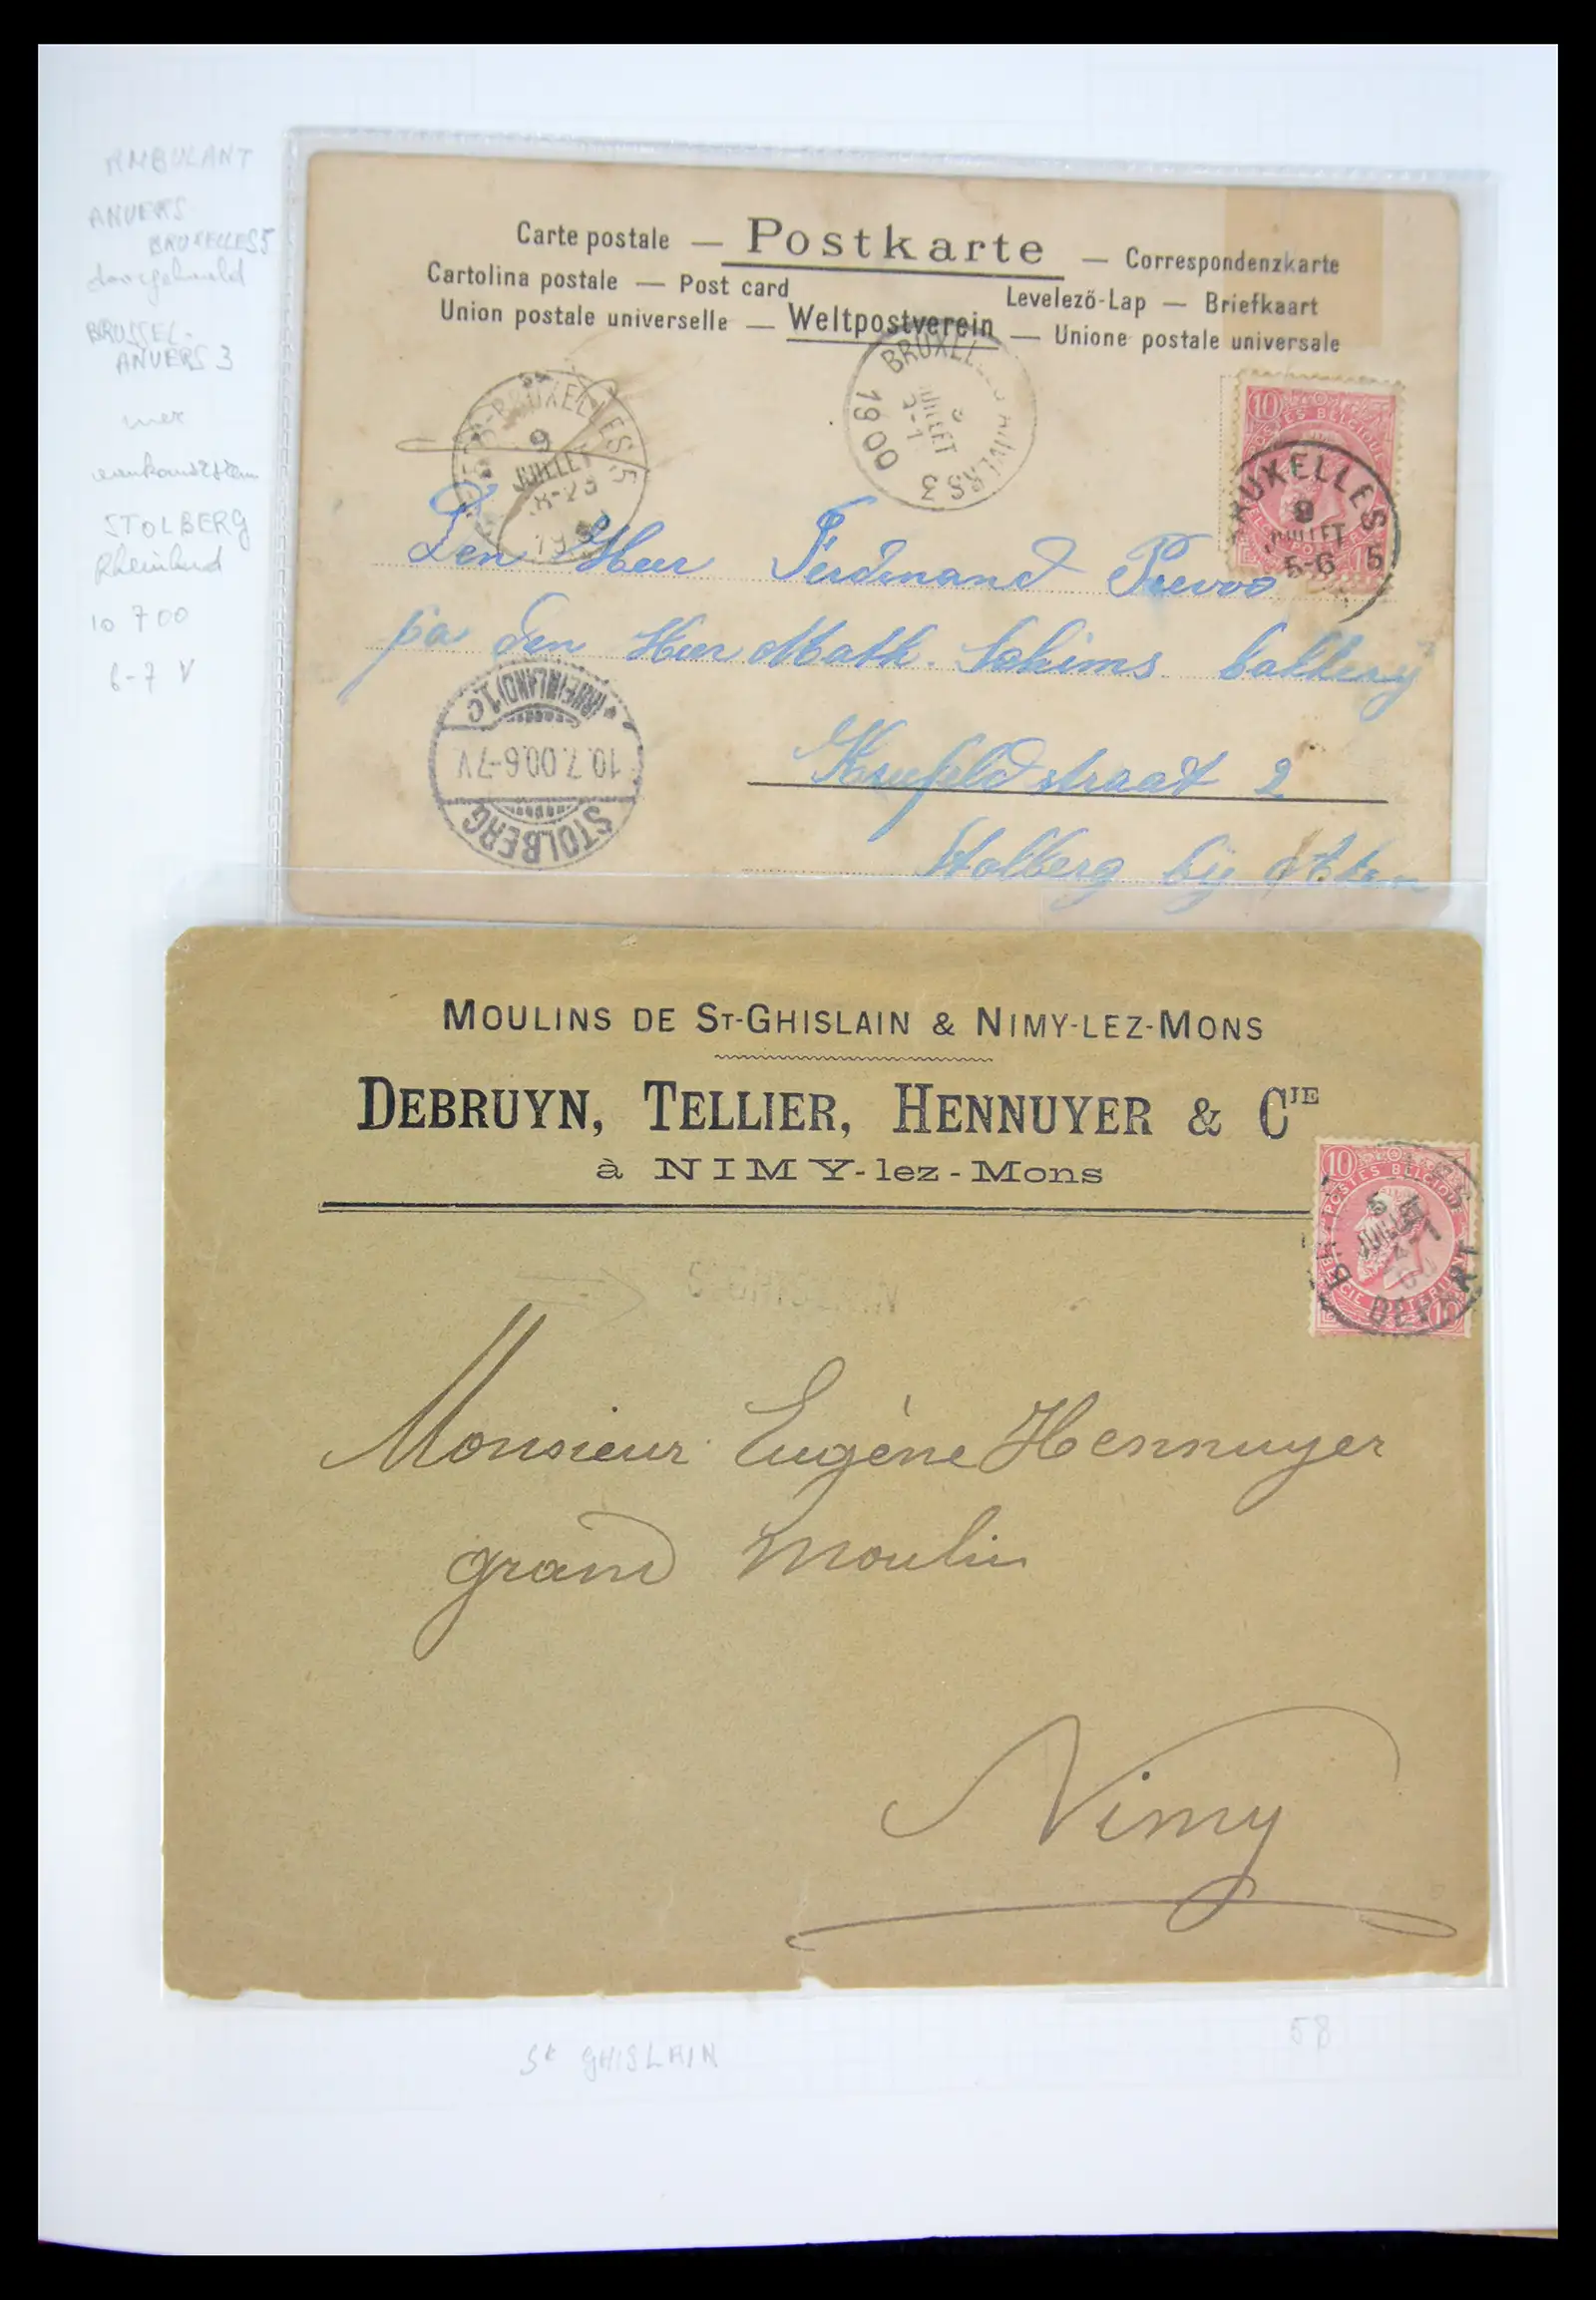 AMBULANT
ANVERS
BRUXELLES 5
BRUSSEL-
ANVERS 3
STOLBERG
Rheinland
10 7 00
6-7 V
Carte postale — Postkarte — Correspondenzkarte
Cartolina postale — Post card
Levelező-Lap — Briefkaart
Union postale universelle — Weltpostverein — Unione postale universale
BRUXELLES 5
9
JUILLET
BRUXELLES ANVERS 3
JUILLET
1900
10
POSTES BELGIQUE
BRUXELLES 5
JUILLET
5-6
Den Heer Ferdinand
pa den Heer Math.
straat 2
Stolberg bij
STOLBERG
10.7.00.6-7V.
(RHEINLAND) 1c
MOULINS DE ST-GHISLAIN & NIMY-LEZ-MONS
DEBRUYN, TELLIER, HENNUYER & CIE
à NIMY-lez-Mons
10
POSTES BELGIQUE
JUILLET
DÉPART
Monsieur Eugène Hennuyer
grand moulin
Nimy
St GHISLAIN
58